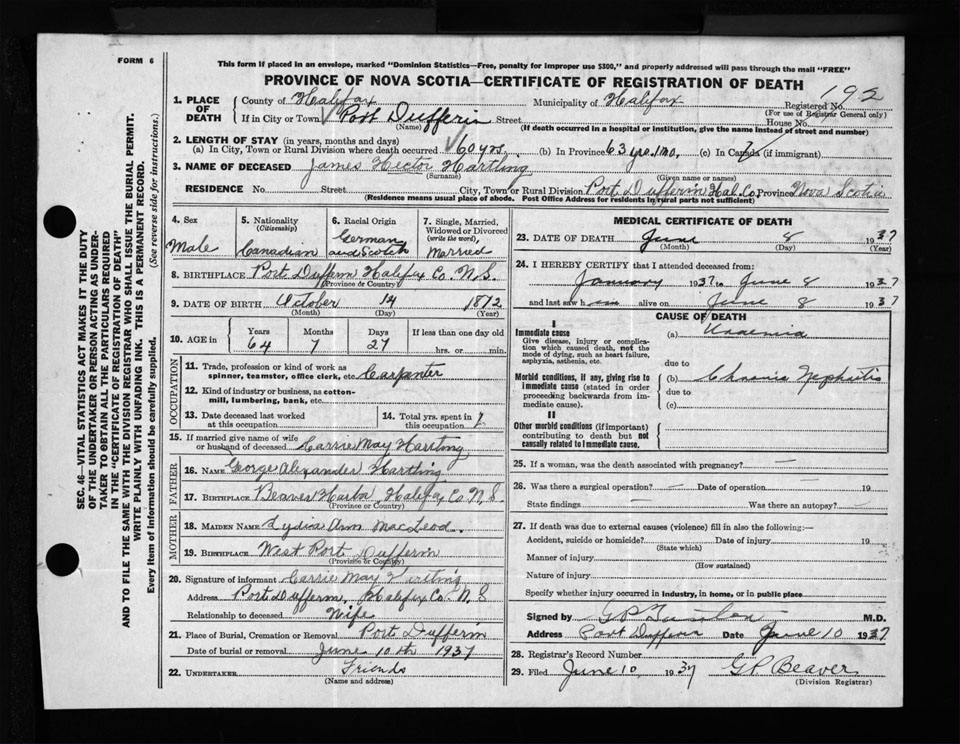 FORM 6
This form if placed in an envelope, marked "Dominion Statistics—Free, penalty for improper use $300," and properly addressed will pass through the mail "FREE"
PROVINCE OF NOVA SCOTIA—CERTIFICATE OF REGISTRATION OF DEATH
192
1. PLACE OF DEATH
County of Halifax Municipality of Halifax Registered No.
(For use of Registrar General only)
If in City or Town Port Dufferin Street House No.
(Name) (If death occurred in a hospital or institution, give the name instead of street and number)
2. LENGTH OF STAY (in years, months and days)
(a) In City, Town or Rural Division where death occurred 60 yrs. (b) In Province 63 yrs. 1 mo. (c) In Canada (if immigrant)
3. NAME OF DECEASED James Hector Hartling
(Surname) (Given name or names)
RESIDENCE No. Street City, Town or Rural Division Port Dufferin Hal. Co. Province Nova Scotia
(Residence means usual place of abode. Post Office Address for residents in rural parts not sufficient)
4. Sex
Male
5. Nationality
(Citizenship)
Canadian
6. Racial Origin
German
and Scotch
7. Single, Married,
Widowed or Divorced
(write the word)
Married
8. BIRTHPLACE Port Dufferin Halifax Co. N.S.
(Province or Country)
9. DATE OF BIRTH October 14 1872
(Month) (Day) (Year)
10. AGE in
Years Months Days If less than one day old
64 7 27 hrs. or min.
OCCUPATION
11. Trade, profession or kind of work as
spinner, teamster, office clerk, etc. Carpenter
12. Kind of industry or business, as cotton-
mill, lumbering, bank, etc.
13. Date deceased last worked
at this occupation
14. Total yrs. spent in
this occupation
15. If married give name of wife
or husband of deceased Carrie May Hartling
FATHER
16. NAME George Alexander Hartling
17. BIRTHPLACE Beaver Harbor, Halifax Co N S
(Province or Country)
MOTHER
18. MAIDEN NAME Lydia Ann MacLeod.
19. BIRTHPLACE West Port Dufferin
(Province or Country)
20. Signature of informant Carrie May Hartling
Address Port Dufferin, Halifax Co. N. S
Relationship to deceased Wife
21. Place of Burial, Cremation or Removal Port Dufferin
Date of burial or removal June 10th 1937
22. UNDERTAKER Friends
(Name and address)
MEDICAL CERTIFICATE OF DEATH
23. DATE OF DEATH June 8 1937
(Month) (Day)
24. I HEREBY CERTIFY that I attended deceased from:
January 1937 to June 8 1937
and last saw h alive on June 8 1937
CAUSE OF DEATH
I
Immediate cause (a) Uraemia
Give disease, injury or complica-
tion which caused death, not the
mode of dying, such as heart failure,
asphyxia, asthenia, etc.
due to
Morbid conditions, if any, giving rise to
immediate cause (stated in order
proceeding backwards from im-
mediate cause).
(b) Chronic Nephritis
due to
(c)
II
Other morbid conditions (if important)
contributing to death but not
causally related to immediate cause.
25. If a woman, was the death associated with pregnancy? —
26. Was there a surgical operation? — Date of operation — 19
State findings Was there an autopsy? —
27. If death was due to external causes (violence) fill in also the following:—
Accident, suicide or homicide? Date of injury 19
(State which)
Manner of injury
(How sustained)
Nature of injury
Specify whether injury occurred in Industry, in home, or in public place
Signed by M.D.
Address Port Dufferin Date June 10 1937
28. Registrar's Record Number
29. Filed June 10, 1937 G.P. Beaver
(Division Registrar)
SEC. 46—VITAL STATISTICS ACT MAKES IT THE DUTY
OF THE UNDERTAKER OR PERSON ACTING AS UNDER-
TAKER TO OBTAIN ALL THE PARTICULARS REQUIRED
IN THE "CERTIFICATE OF REGISTRATION OF DEATH"
AND TO FILE THE SAME WITH THE DIVISION REGISTRAR WHO SHALL ISSUE THE BURIAL PERMIT.
WRITE PLAINLY WITH UNFADING INK. THIS IS A PERMANENT RECORD.
Every item of information should be carefully supplied. (See reverse side for instructions.)